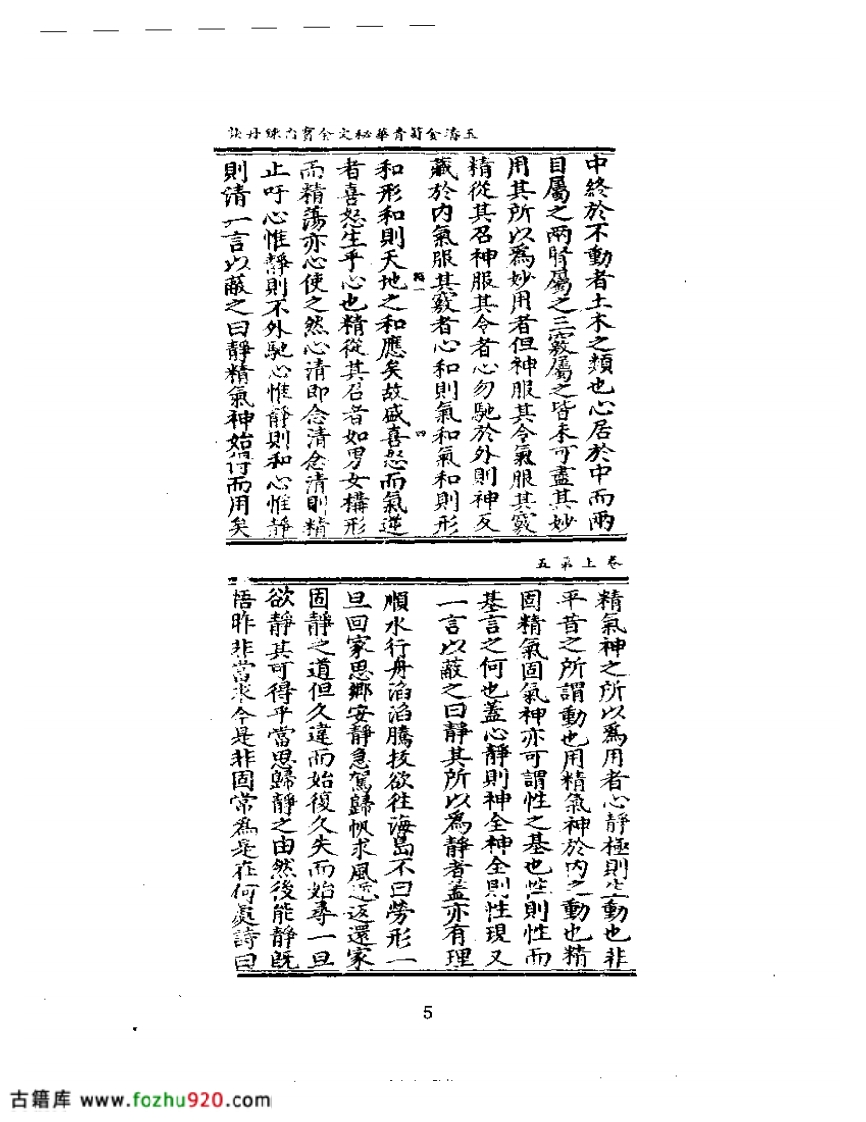 玉清金笥青華秘文金寶內鍊丹訣
中終於不動者土木之類也心居於中而兩
目屬之兩腎屬之三竅屬之皆未可盡其妙
用其所以為妙用者但神服其令氣服其竅
精從其召神服其令者心勿馳於外則神反
藏於內氣服其竅者心和則氣和氣和則形
和形和則天地之和應矣故盛喜怒而氣逆
者喜怒生乎心也精從其召者如男女構形
而精蕩亦心使之然心清即念清念清則精
止吁心惟靜則不外馳心惟靜則和心惟靜
則清一言以蔽之曰靜精氣神始得而用矣
四
卷上第五
精氣神之所以為用者心靜極則生動也非
平昔之所謂動也用精氣神於內之動也精
固精氣固氣神亦可謂性之基也性則性而
基言之何也蓋心靜則神全神全則性現又
一言以蔽之曰靜其所以為靜者蓋亦有理
順水行舟滔滔騰技欲往海島不曰勞形一
旦回家思鄉安靜急駕歸帆求風迅返還家
固靜之道但久違而始復久失而始尋一旦
欲靜其可得乎當思歸靜之由然後能靜既
悟昨非當求今是非固常為是在何處詩曰
5
古籍库 www.fozhu920.com